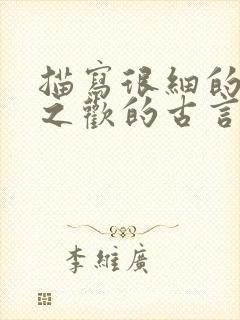 描寫很細的
之歡的古言
李維廣